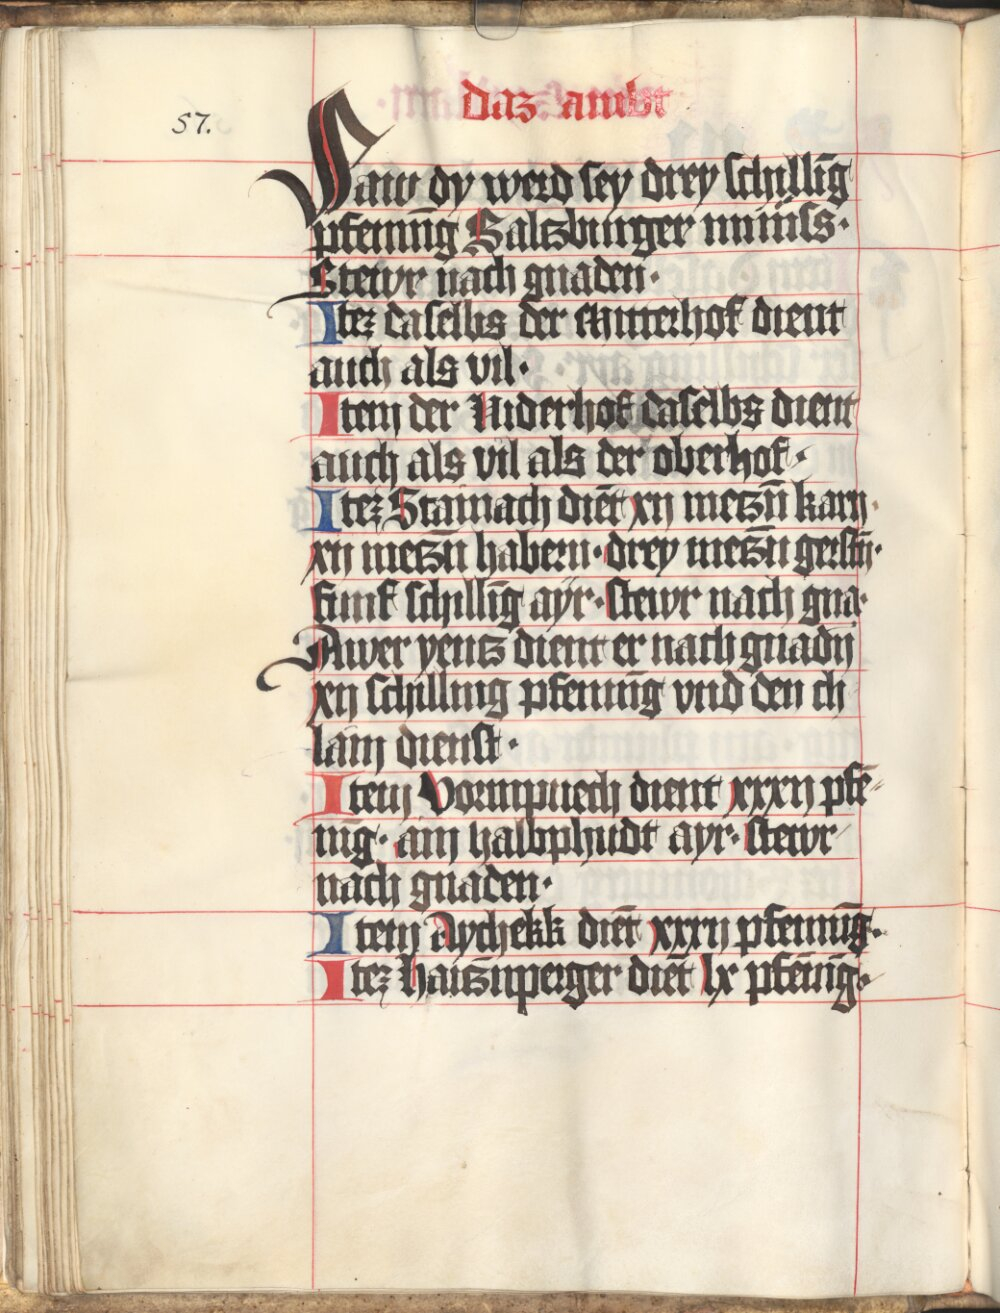 daz ambt
57.
Saw dy werd sey drey schillīg
pfeninīg Salczburger münss·
Stewr nach gnaden·
Itez daselbs der Mitterhof dient
auch als vil·
Item der Niderhof daselbs dient
auch als vil als der oberhof·
Itez Stainach diēt xij meczn̄ karn·
xij meczn̄ habern· drey meczn̄ gerstn̄·
funf schillīg ayr· stewr nach gna·
Awer yencz dient er nach gnadn̄
xij schilling pfeninīg vnd den ch
lain dienst·
Item Vormpuech dient xxxij pfē
nīg· ain halbphudt ayr· stewr
nach gnaden·
Item Aychekk diēt xxxij pfennīg·
Itez haicznperger diēt lx pfēnīg·